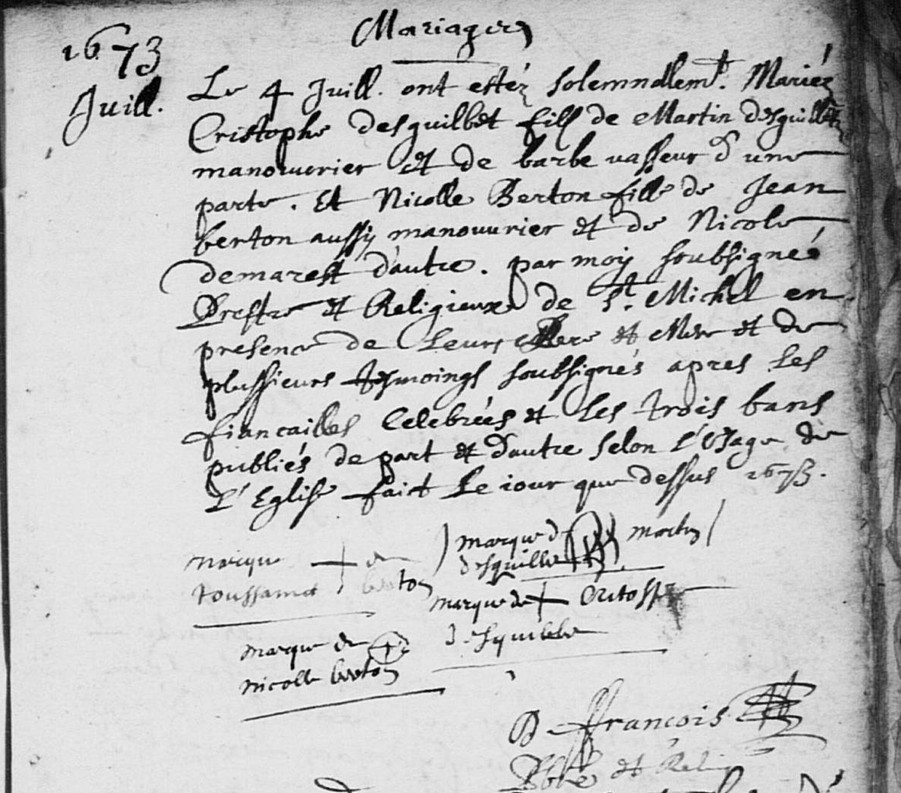 Mariages
1673
Juill.
Le 4 Juill. ont estéz solemnellemt. Mariéz
Cristophe desguilbet fils de Martin desguilbet
manouvrier et de barbe vasseur d'une
parte. Et Nicolle Berton fille de Jean
berton aussy manouvrier et de Nicole
demarest d'autre. par moy soubsigné
Prestre et Religieux de St. Michel en
presence de Leurs Pere et Mere et de
plussieurs tesmoings soubsignés apres les
fiancailles Celebrées et les trois bans
publiés de part et d'autre selon l'Usage de
L'Eglise faict Le iour que dessus 1673.
marque de
toussainct berton
marque de martin
desguilbe
marque de Critoffe
desguilbe
marque de
nicolle berton
D francois
Pbre et Reli